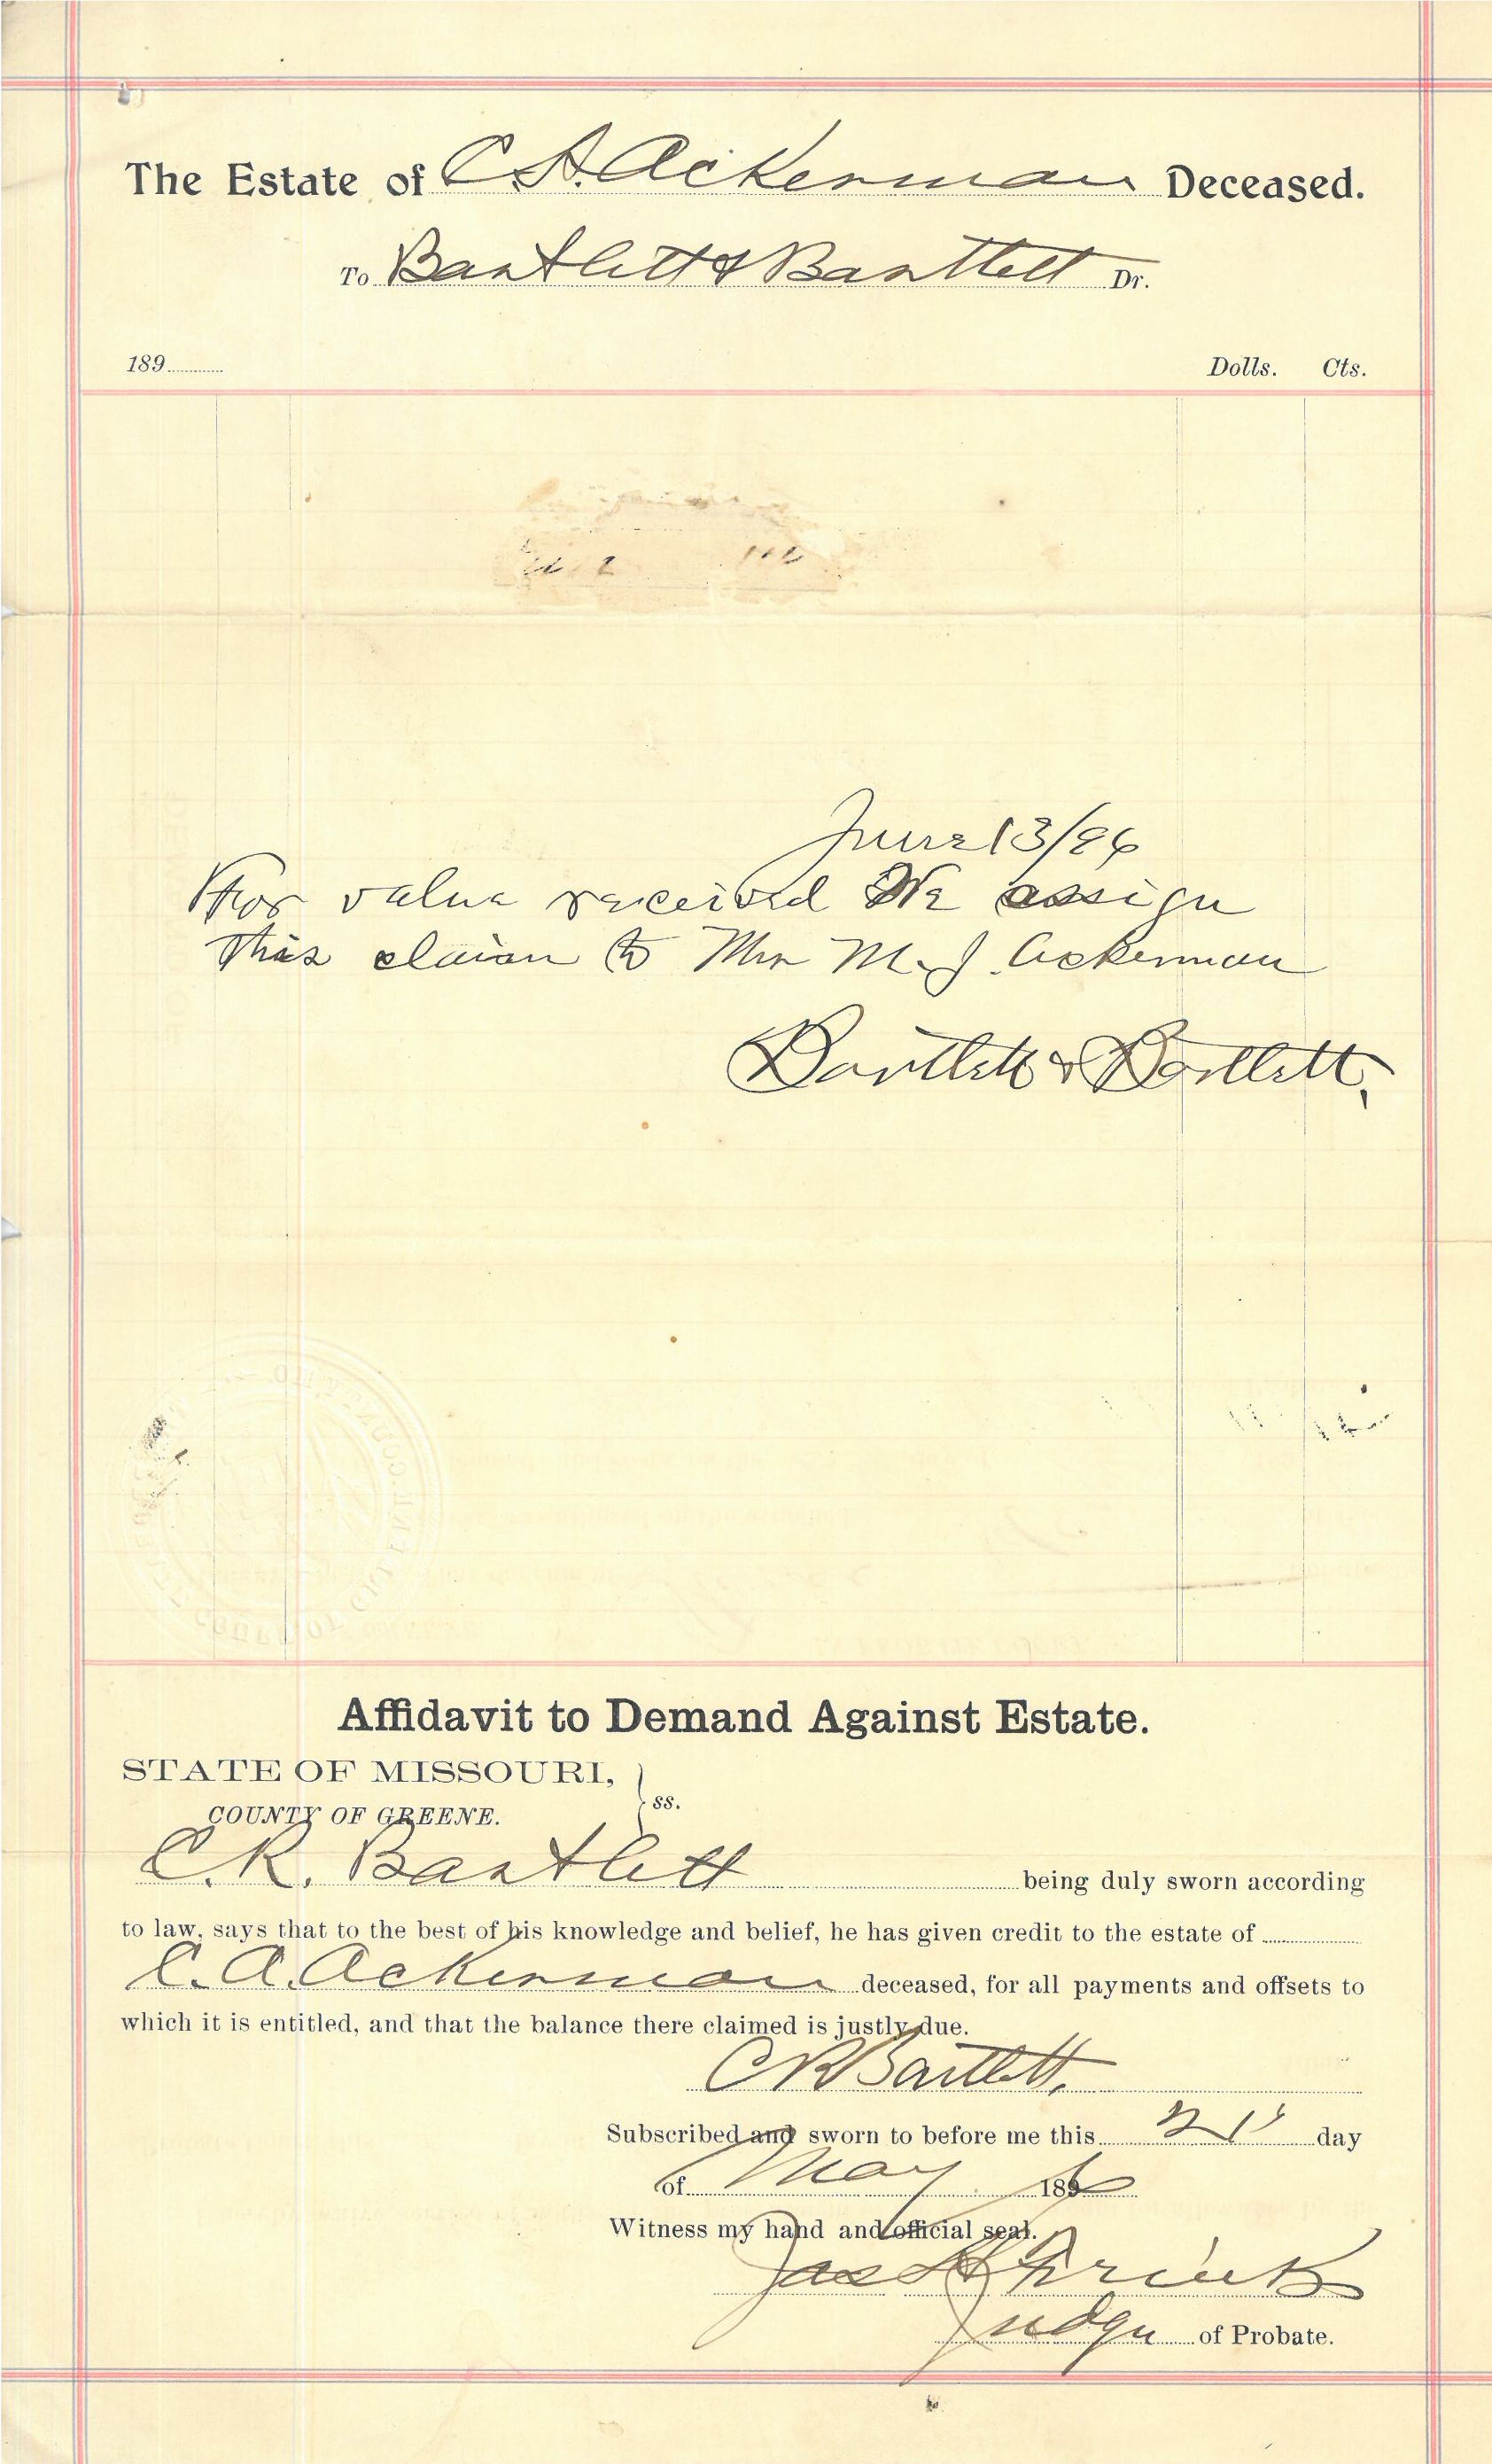 The Estate of C A. Ackerman Deceased.
To Bartlett & Bartlett Dr.
189 Dolls. Cts.
June 13/96
For value received We assign
this claim to Mrs M. J. Ackerman
Bartlett & Bartlett.
Affidavit to Demand Against Estate.
STATE OF MISSOURI,
COUNTY OF GREENE. } ss.
C. R. Bartlett being duly sworn according
to law, says that to the best of his knowledge and belief, he has given credit to the estate of
C. A. Ackerman deceased, for all payments and offsets to
which it is entitled, and that the balance there claimed is justly due.
C R Bartlett.
Subscribed and sworn to before me this 21" day
of May 1896
Witness my hand and official seal.
Jas H
Judge of Probate.